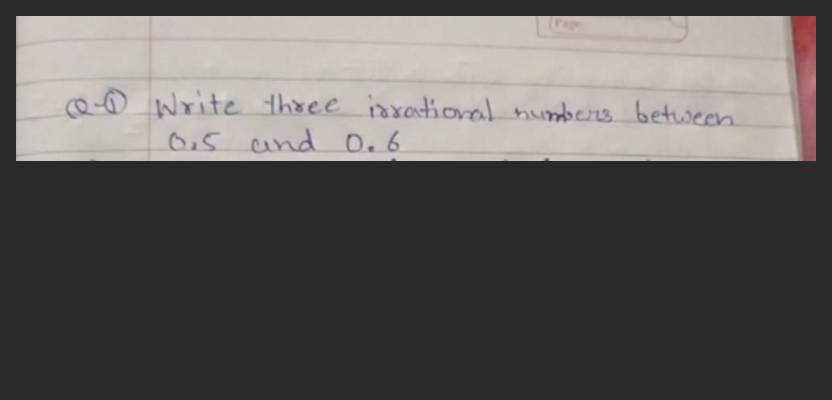 Page:
Q-① Write three irrational numbers between
0.5 and 0.6